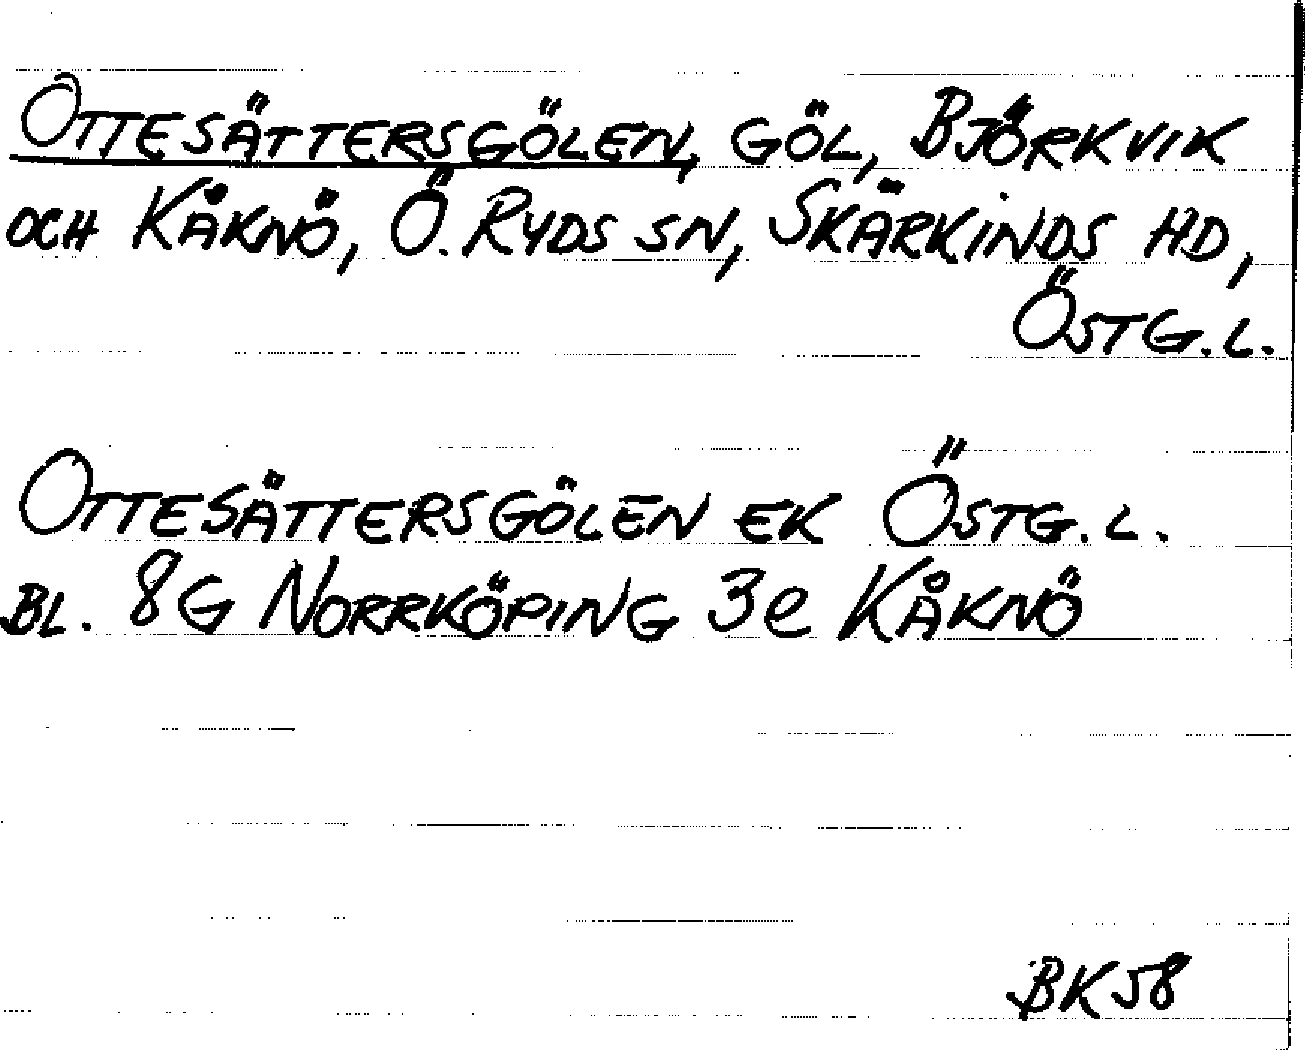 OTTESÄTTERSGÖLEN, GÖL, BJÖRKVIK
OCH KÅKNÖ, Ö. RYDS SN, SKÄRKINDS HD,
ÖSTG.L.
OTTESÄTTERSGÖLEN EK ÖSTG.L.
BL. 8G NORRKÖPING 3e KÅKNÖ
BK58